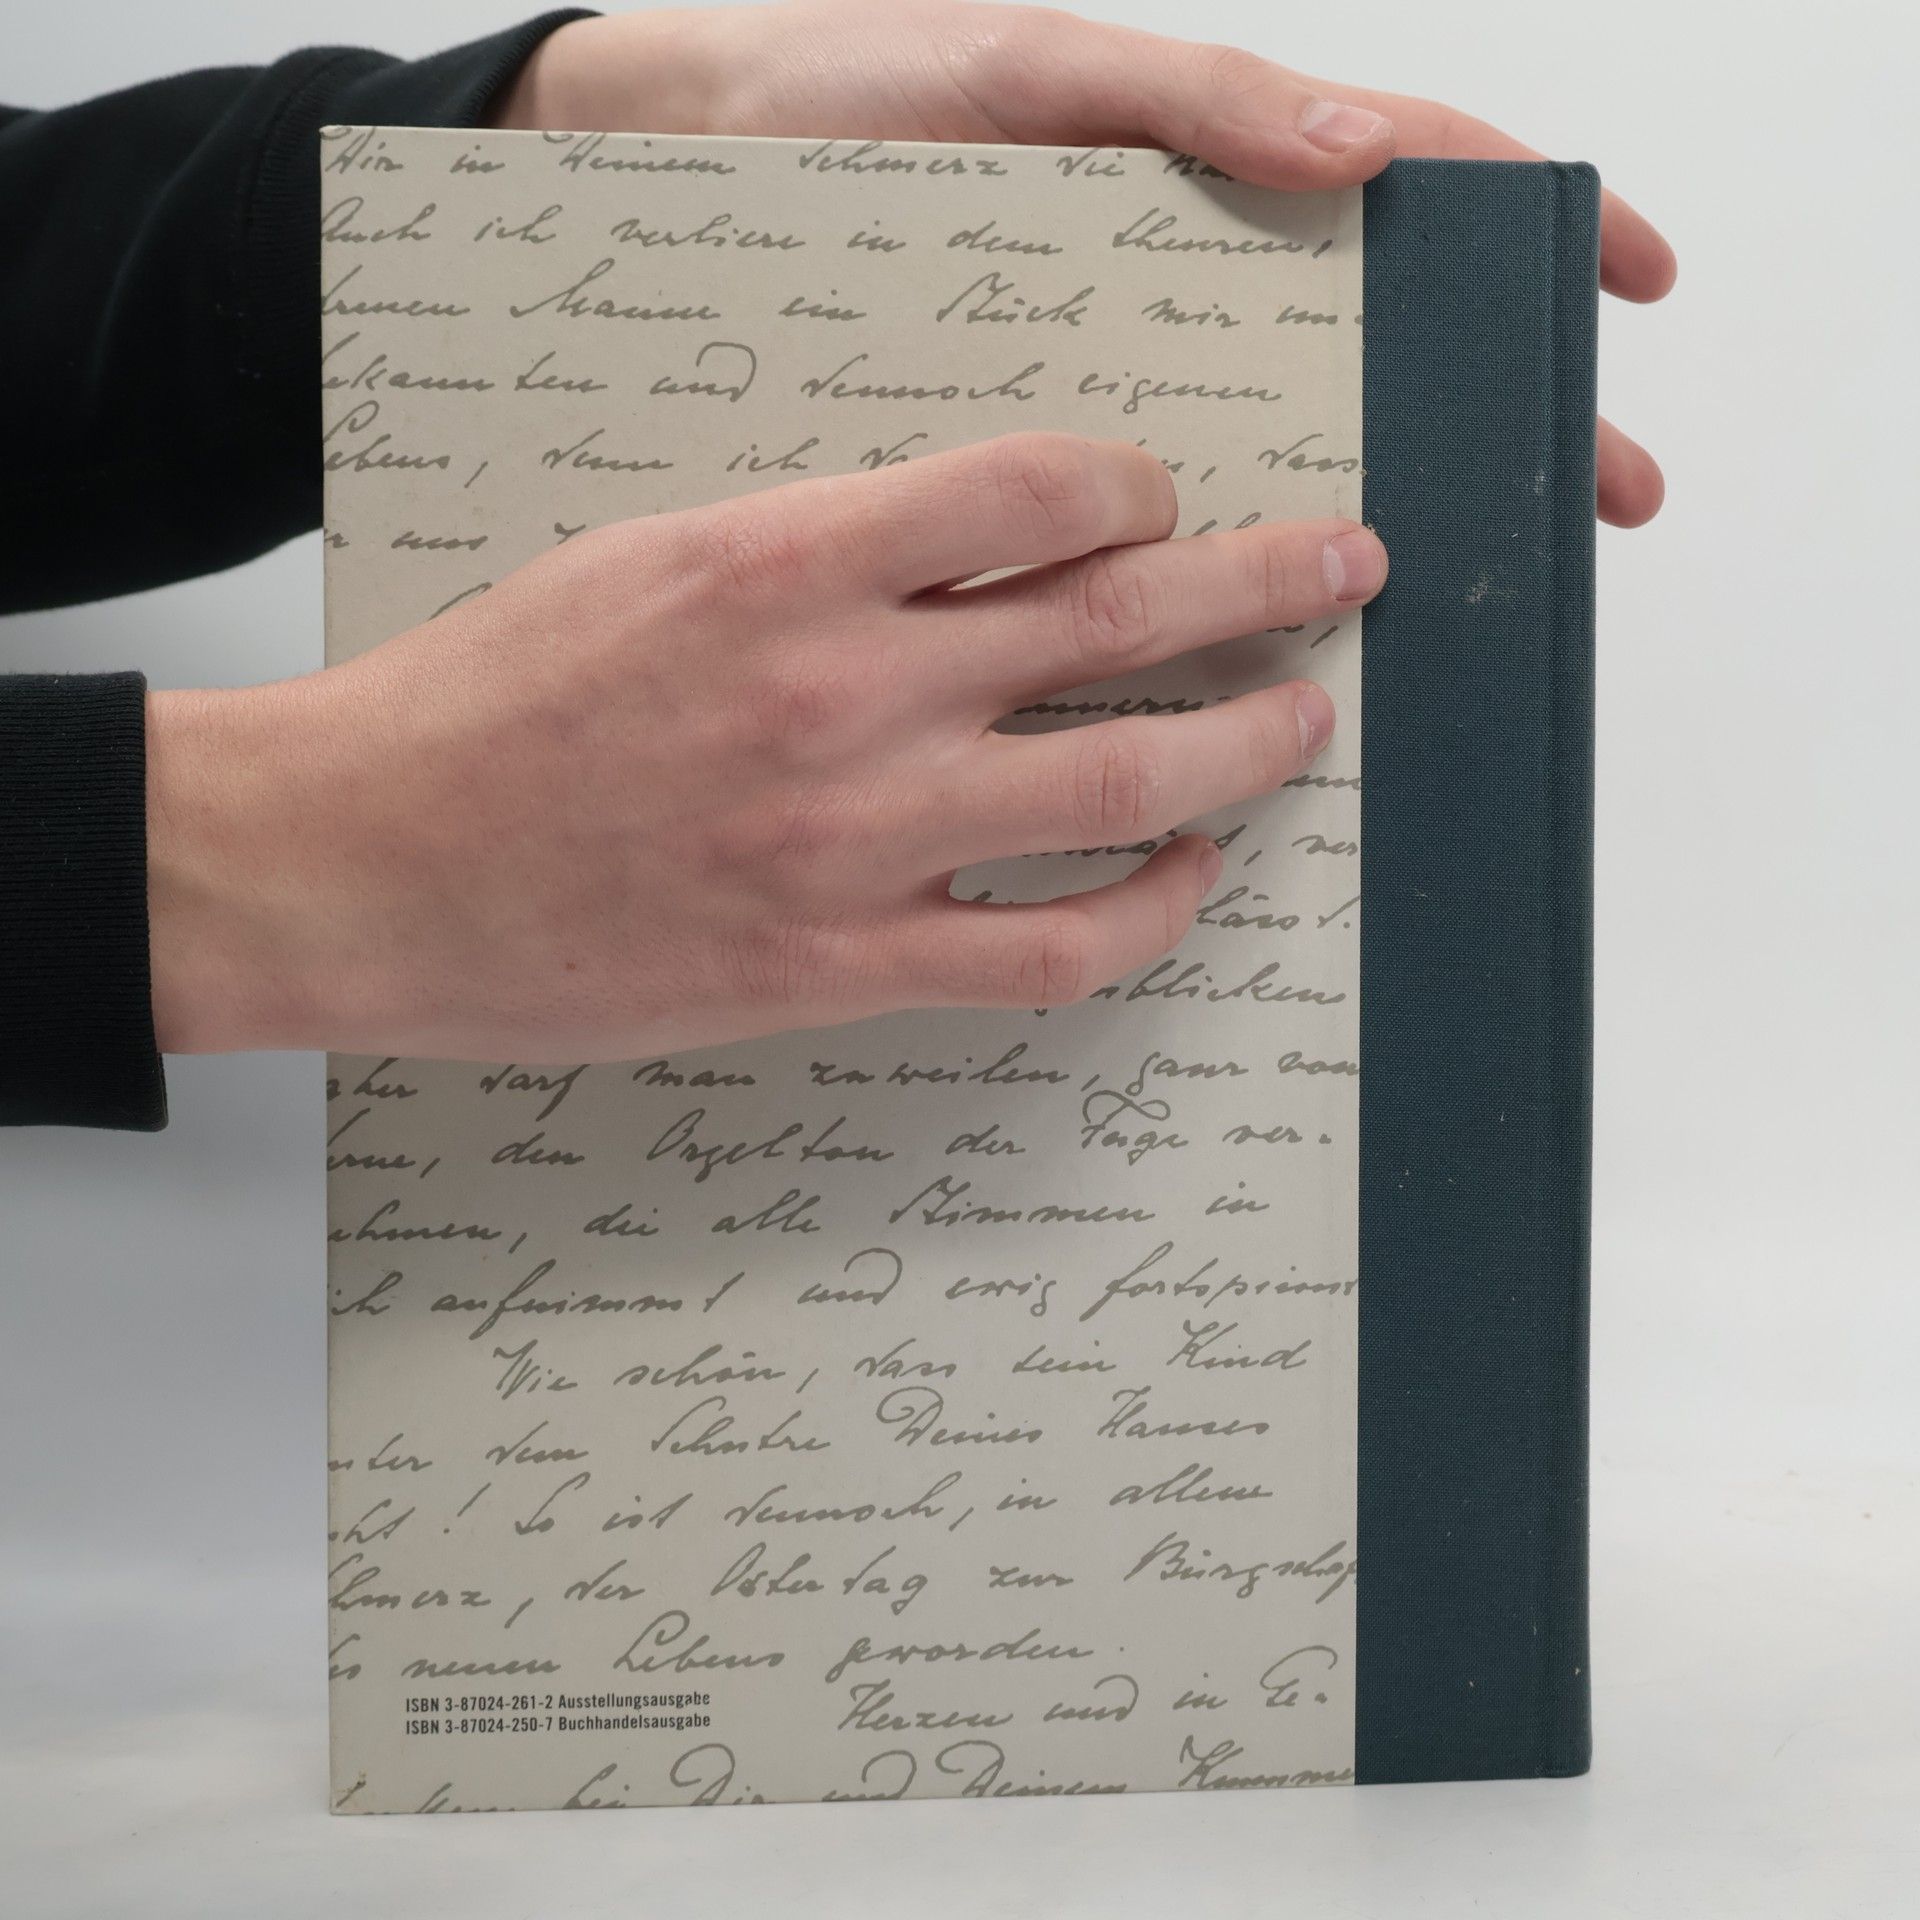 Dir in Deinem Schmerz die
Auch ich verliere in dem theuren,
treuen Manne ein Stück mir un-
bekannten und dennoch eigenen
Lebens, denn ich , dass
er uns
läss t.
aber darf man zuweilen, ganz von
ferne, den Orgelton der Fuge ver-
nehmen, die alle Stimmen in
sich aufnimmt und ewig fortspinnt
Wie schön, dass sein Kind
unter dem Schutze Deines Hauses
! So ist dennoch, in allem
Schmerz, der Ostertag zur Bürgschaf
des neuen Lebens geworden.
Herzen und in Ge-
bei Dir und Deinem Kummer
ISBN 3-87024-261-2 Ausstellungsausgabe
ISBN 3-87024-250-7 Buchhandelsausgabe